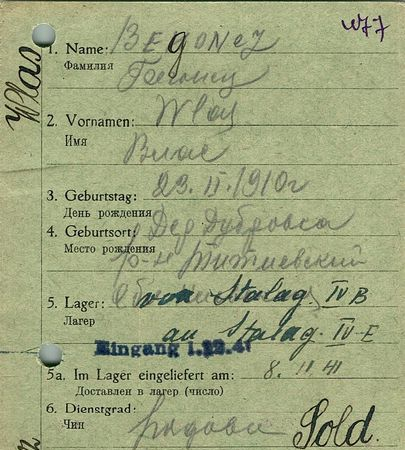 Wlas
1. Name: BEGONEZ
Фамилия
2. Vornamen: Wlas
Имя Влас
3. Geburtstag: 23.II.1910г
День рождения
4. Geburtsort: Дер Дубровка
Место рождения р-н
5. Lager: von Stalag. IV B
Лагер an Stalag. IV-E
Eingang 1.12.41
5a. Im Lager eingeliefert am: 8. 11 41
Доставлен в лагер (число)
6. Dienstgrad: Sold.
Чин рядовой